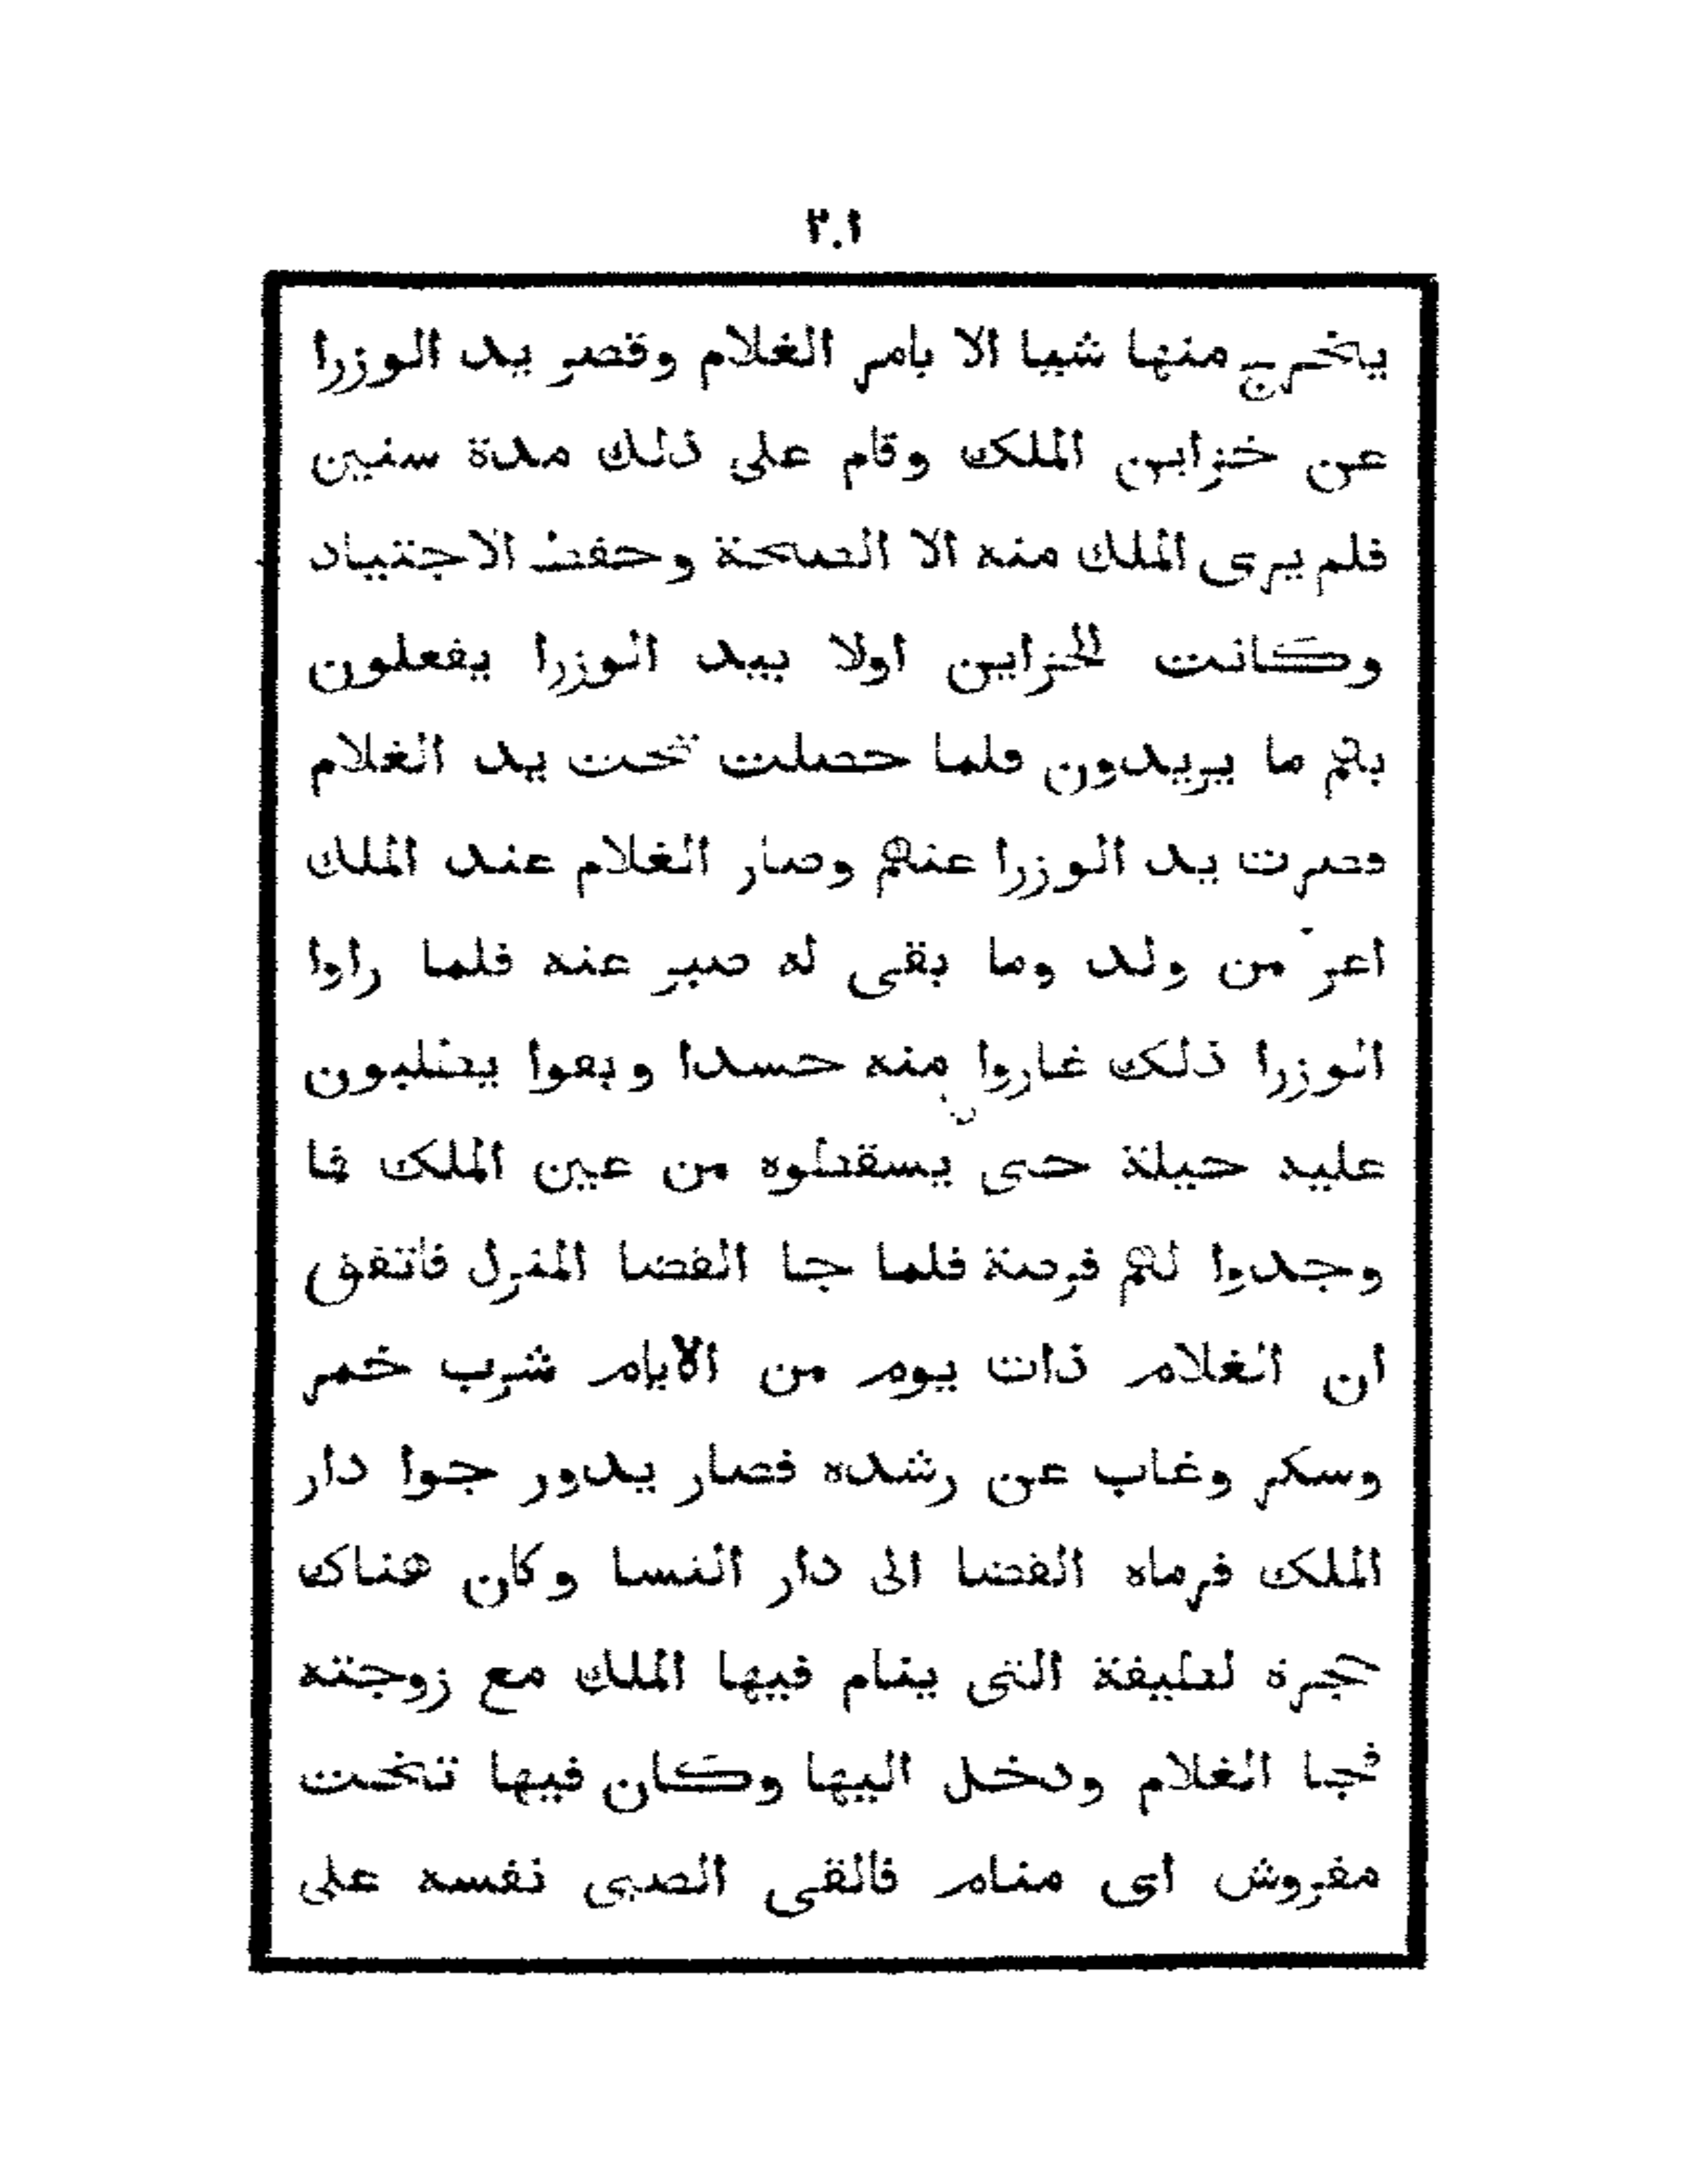 ٢٠١
يخرج منها شيا الا بامر الغلام وقصر يد الوزرا
عن خزاين الملك وقام على ذلك مدة سنين
فلم يرى الملك منه الا الصحة وحفظ الاجتياد
وكانت الخزاين اولا بيد الوزرا يفعلون
بهم ما يريدون فلما حصلت تحت يد الغلام
قصرت يد الوزرا عنهم وصار الغلام عند الملك
اعز من ولد وما بقى له صبر عنه فلما راوا
الوزرا ذلك غاروا منه حسدا وبقوا يطلبون
عليه حيلة حتى يسقطوه من عين الملك فما
وجدوا لهم فرصة فلما جا القضا المنزل فاتفق
ان الغلام ذات يوم من الايام شرب خمر
وسكر وغاب عن رشده فصار يدور جوا دار
الملك فرماه القضا الى دار النسا وكان هناك
حجرة لطيفة التى ينام فيها الملك مع زوجته
فجا الغلام ودخل اليها وكان فيها تخت
مفروش اى منام فالقى الصبى نفسه على